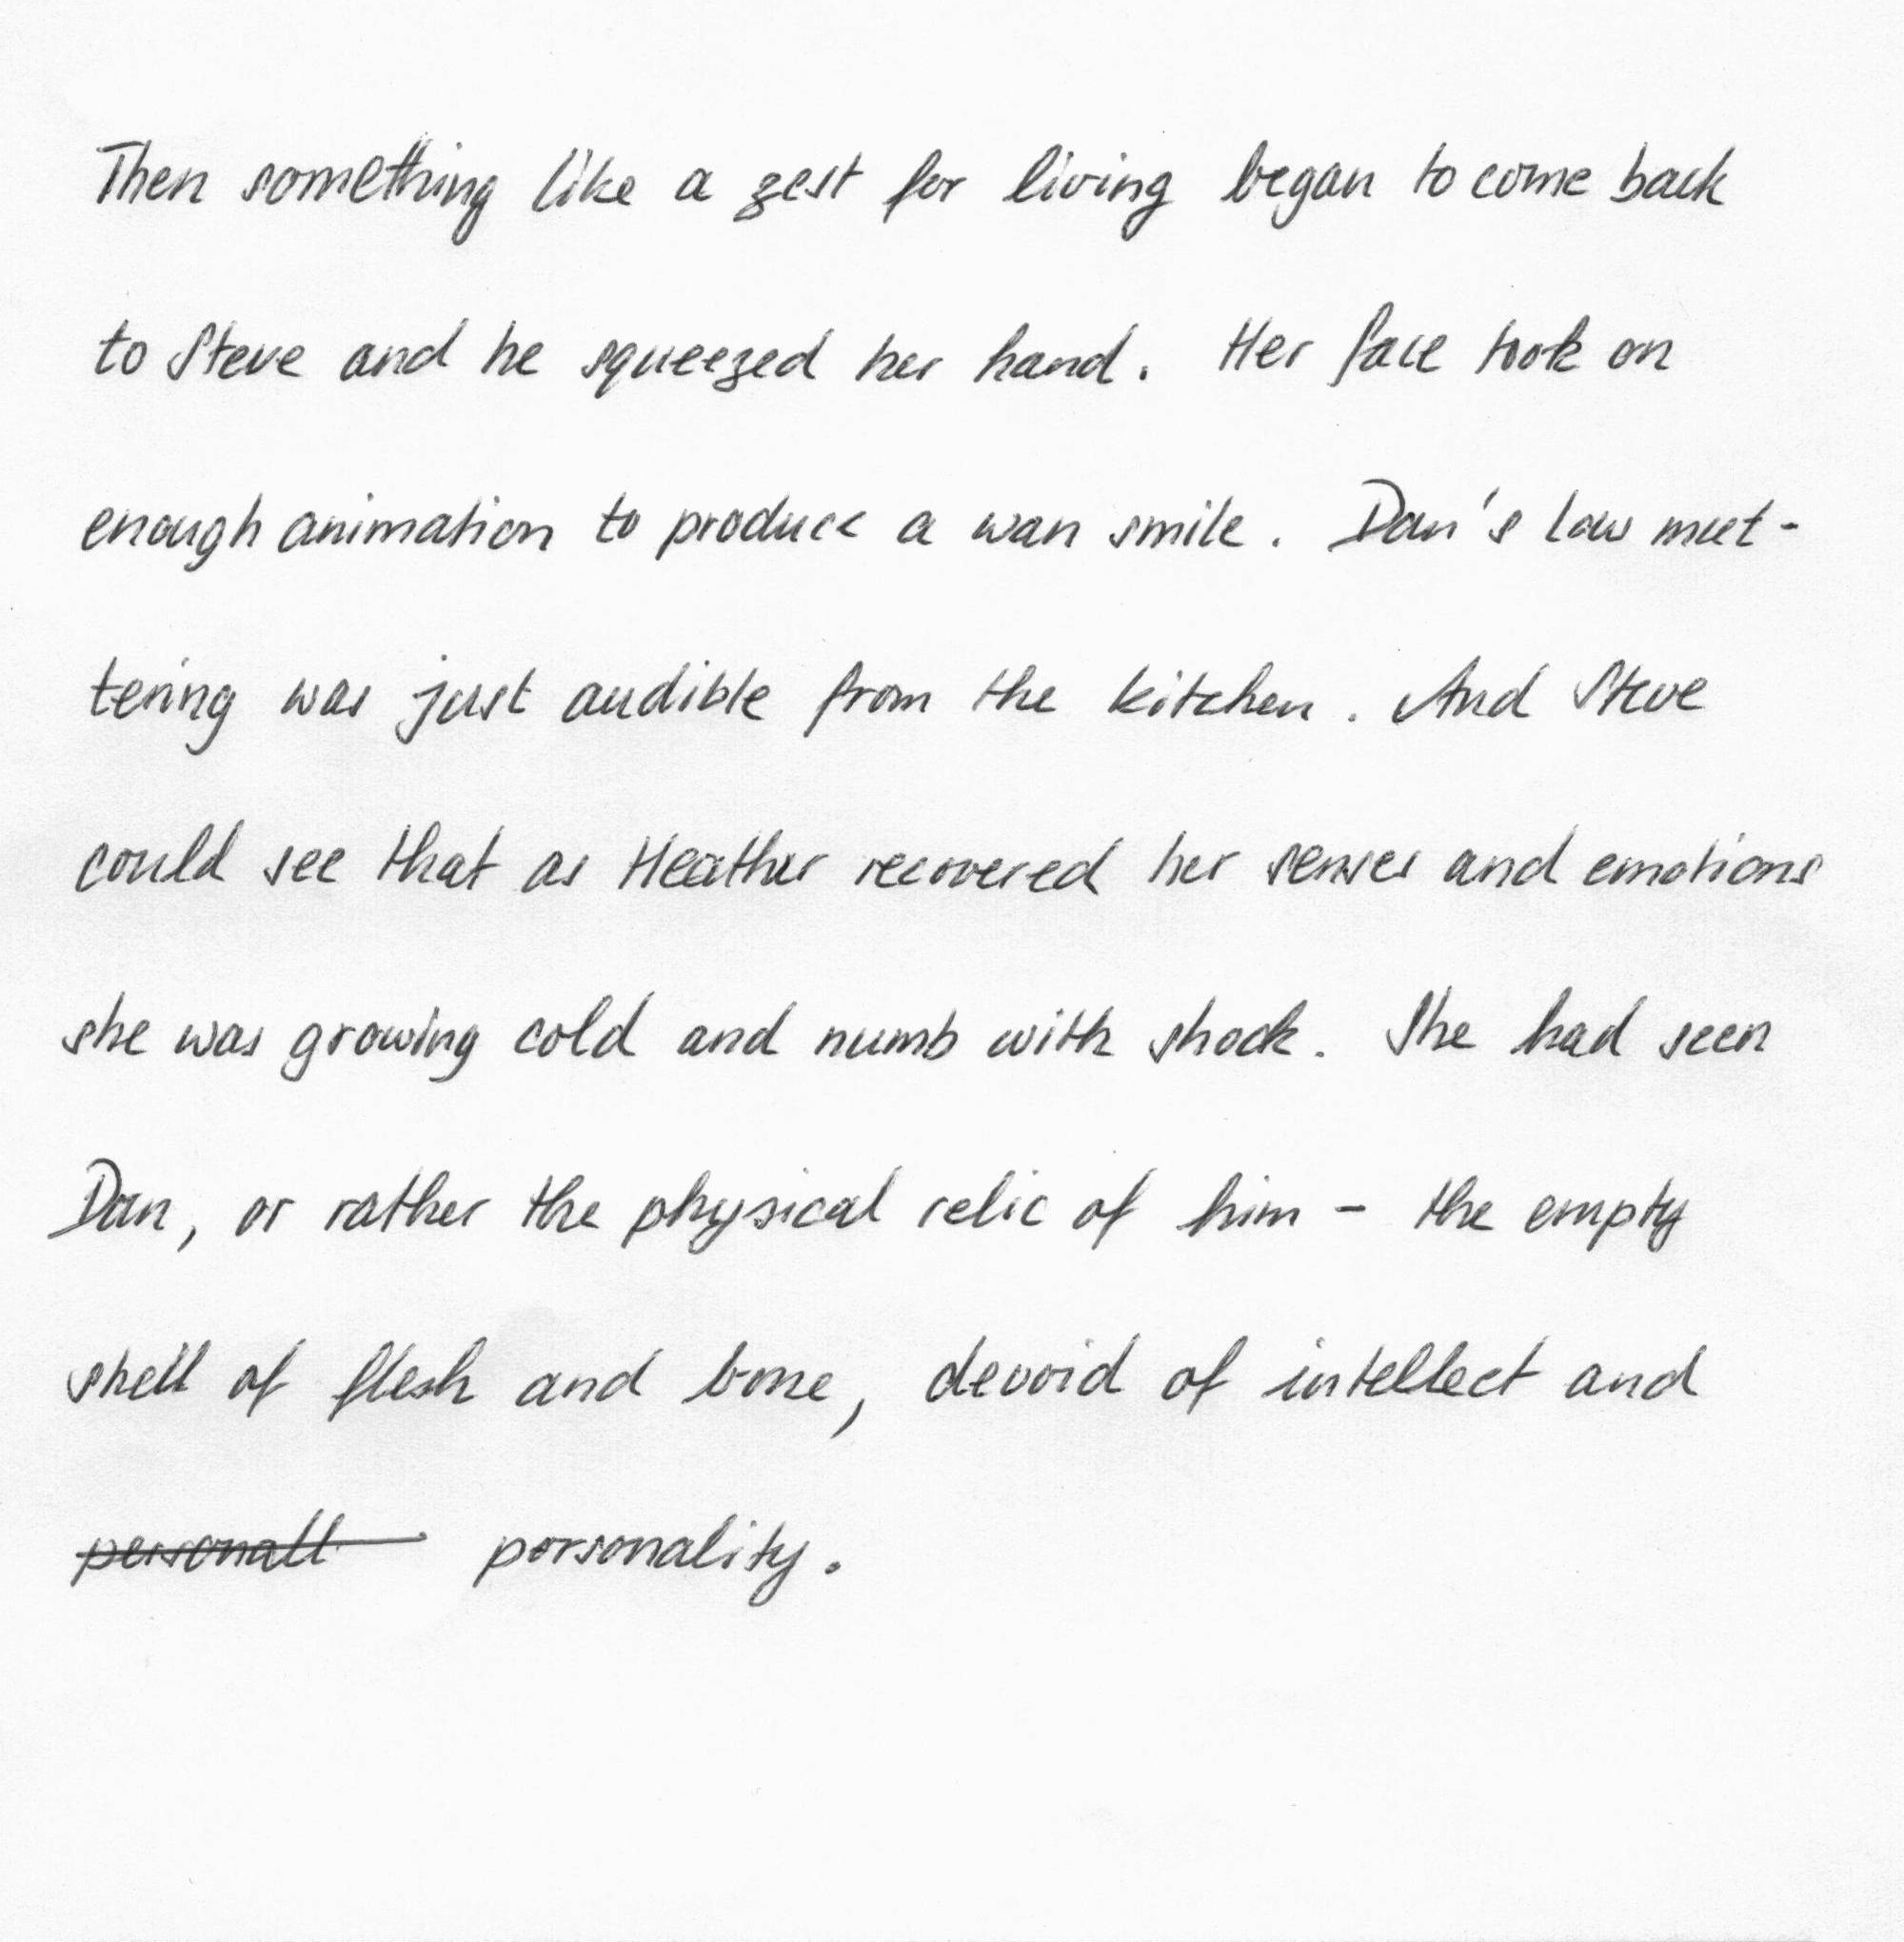 Then something like a zest for living began to come back
to Steve and he squeezed her hand. Her face took on
enough animation to produce a wan smile. Dan's low mut-
tering was just audible from the kitchen. And Steve
could see that as Heather recovered her senses and emotions
she was growing cold and numb with shock. She had seen
Dan, or rather the physical relic of him - the empty
shell of flesh and bone, devoid of intellect and
personall personality.